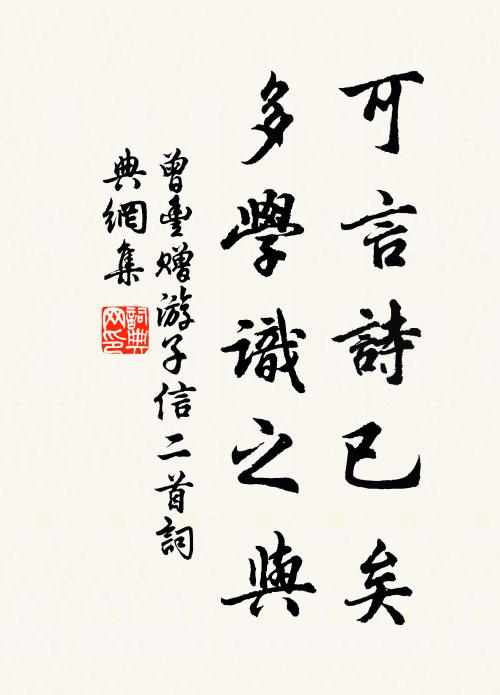 可言詩已矣
多學識之與
曾豐贈游子信二首詞
典網集
詞典
网印